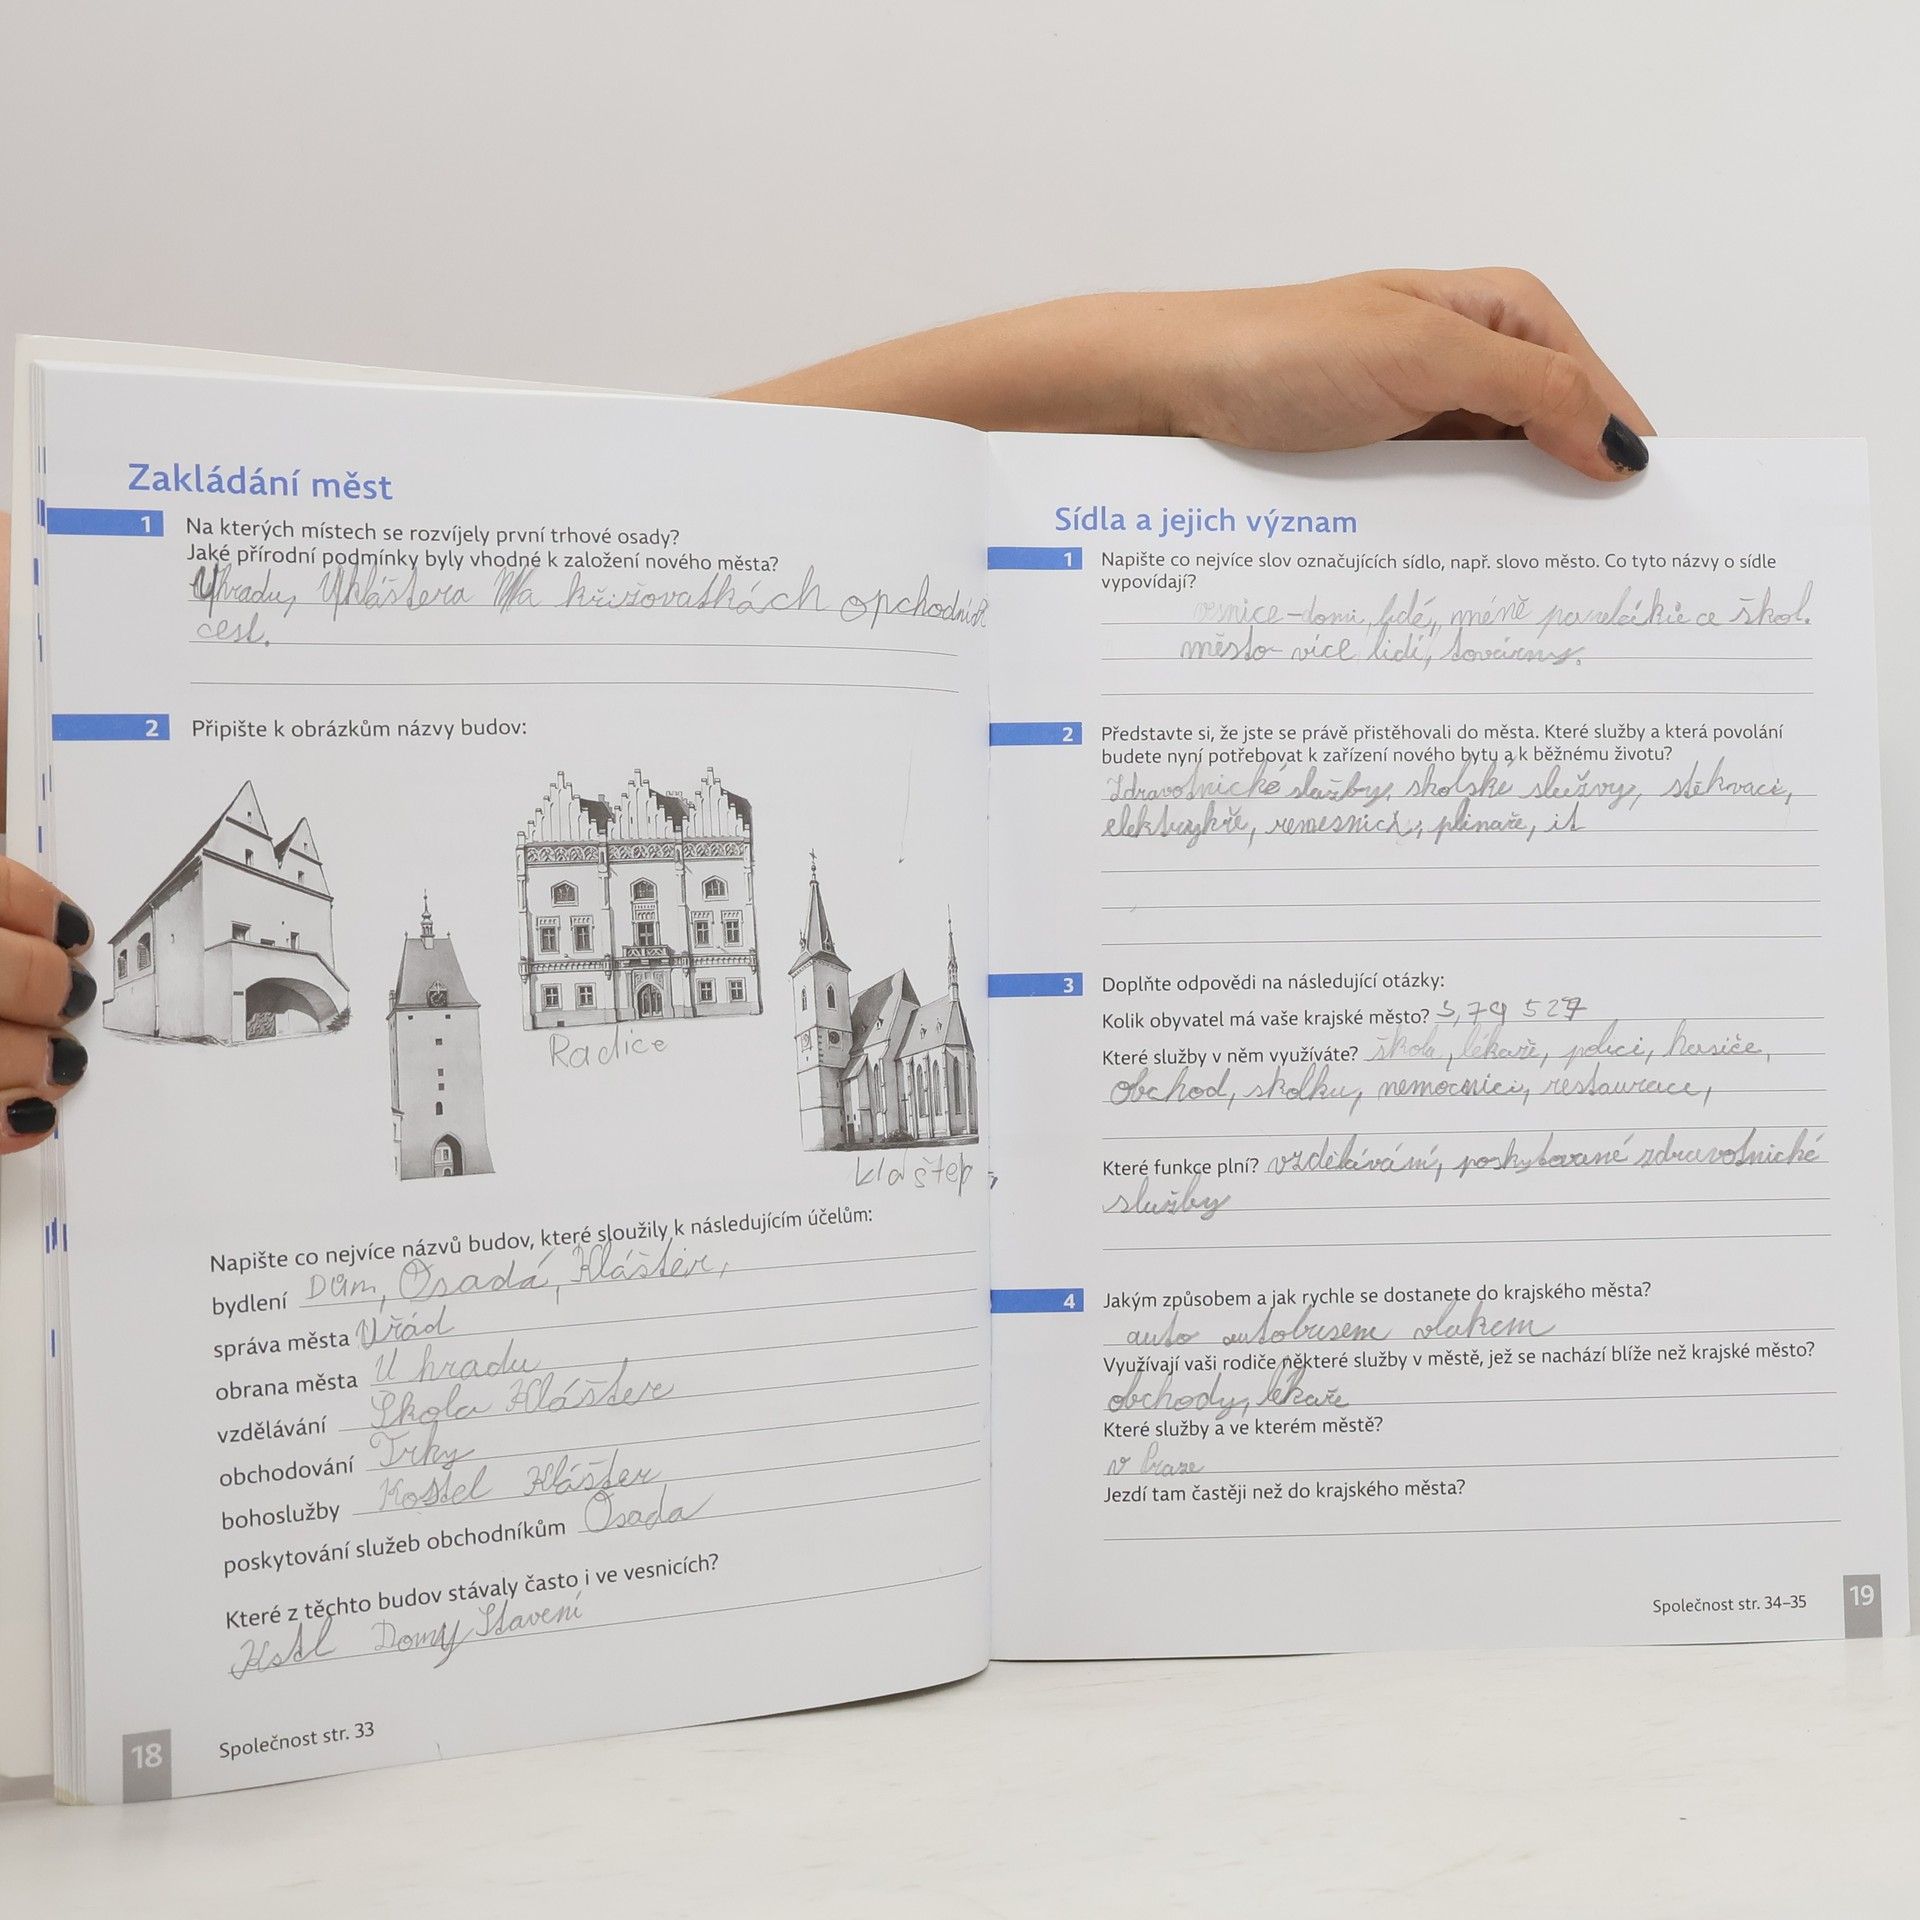 Zakládání měst
1 Na kterých místech se rozvíjely první trhové osady?
Jaké přírodní podmínky byly vhodné k založení nového města?
U hradu, U kláštera Na křižovatkách opchodních
cest.
2 Připište k obrázkům názvy budov:
Radice
klaštep
Napište co nejvíce názvů budov, které sloužily k následujícím účelům:
bydlení Dům, Osadá, Klášter,
správa města Úřád
obrana města U hradu
vzdělávání Škola Klášter
obchodování Trhy
bohoslužby Kostel Klášter
poskytování služeb obchodníkům Osada
Které z těchto budov stávaly často i ve vesnicích?
Kstl Domy Stavení
18 Společnost str. 33
Sídla a jejich význam
1 Napište co nejvíce slov označujících sídlo, např. slovo město. Co tyto názvy o sídle
vypovídají?
vesnice-domi, lidé, méně paneláků a škol.
město- více lidí, továrny.
2 Představte si, že jste se právě přistěhovali do města. Které služby a která povolání
budete nyní potřebovat k zařízení nového bytu a k běžnému životu?
Zdravotnické služby, skolské služvy, stěhvací,
elektrykře, remesnici, plinaře, it
3 Doplňte odpovědi na následující otázky:
Kolik obyvatel má vaše krajské město? 3,79 527
Které služby v něm využíváte? škola, lékaře, polici, hasiče,
obchod, skolku, nemocnici, restaurace,
Které funkce plní? vzdělávání, poskytované zdravotnické
služby
4 Jakým způsobem a jak rychle se dostanete do krajského města?
auto autobusem vlakem
Využívají vaši rodiče některé služby v městě, jež se nachází blíže než krajské město?
obchody, lékaře
Které služby a ve kterém městě?
v
Jezdí tam častěji než do krajského města?
Společnost str. 34–35 19